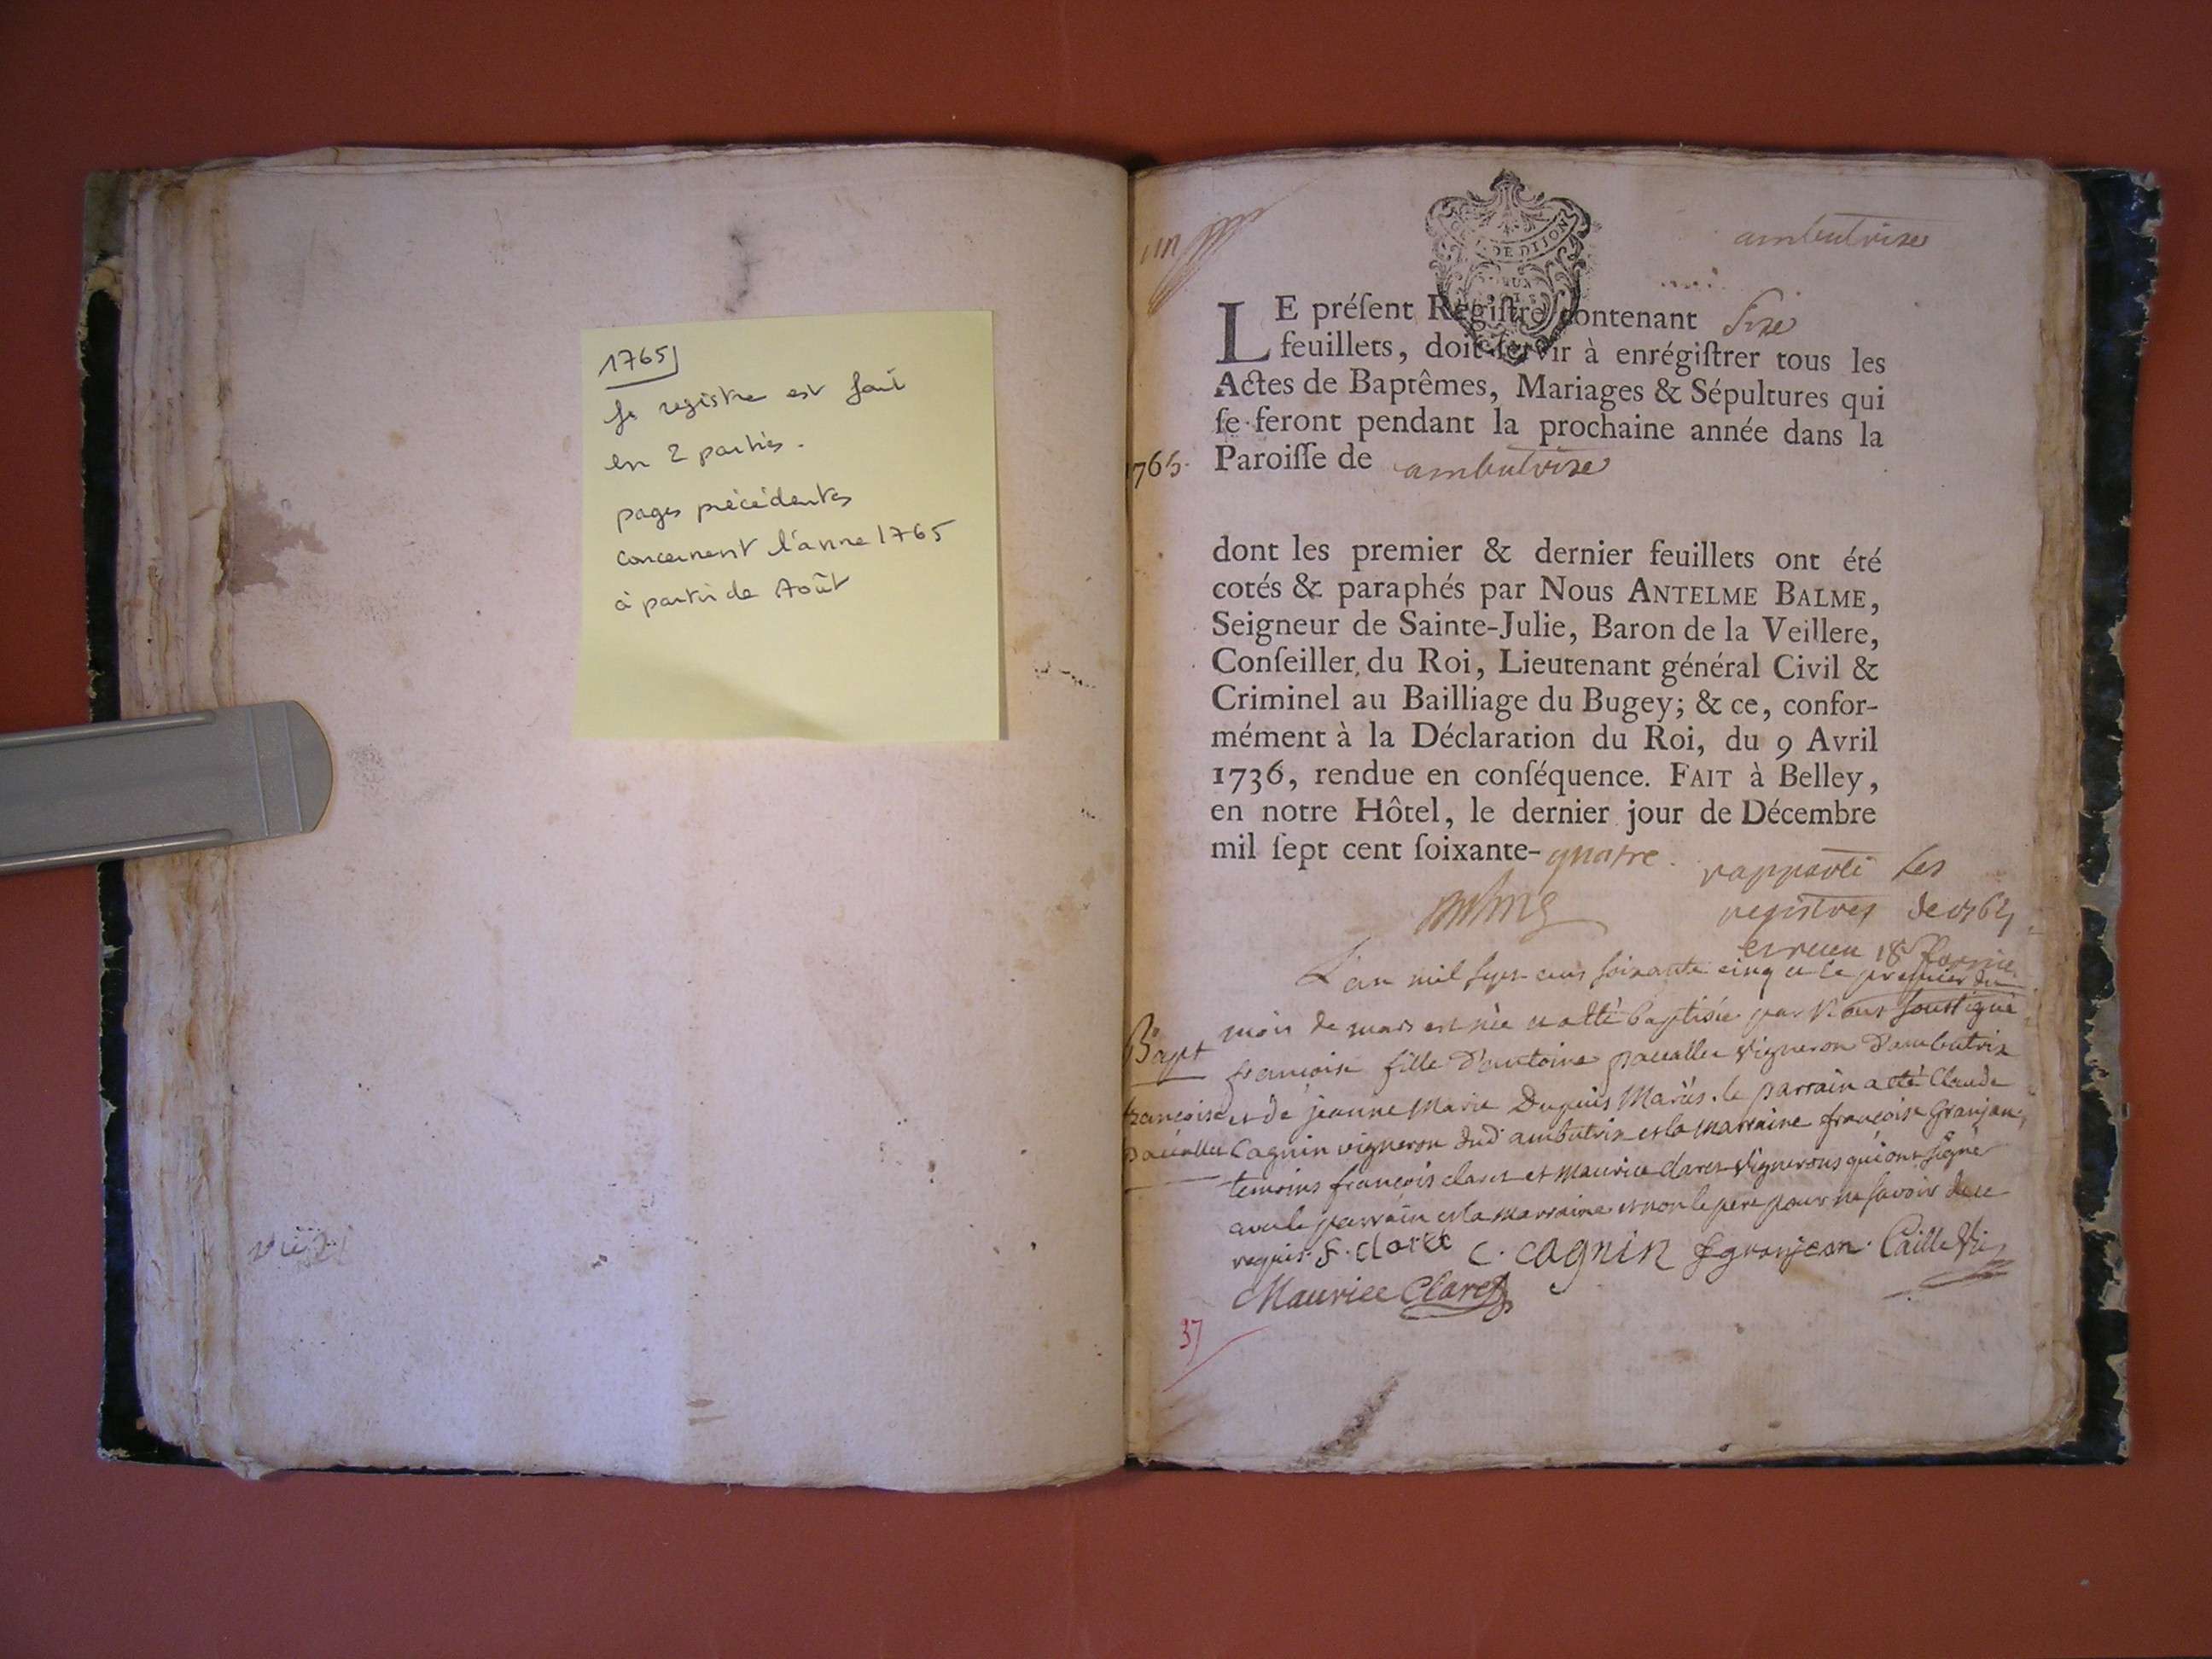 1765
le registre est fait
en 2 parties.
pages précédentes
concernent l'anne 1765
à partir de Août
un
DE DIJON
ambutrix
LE préſent Regiſtre contenant Six
feuillets, doit ſervir à enrégiſtrer tous les
Actes de Baptêmes, Mariages & Sépultures qui
ſe feront pendant la prochaine année dans la
1765. Paroiſſe de ambutrix
dont les premier & dernier feuillets ont été
cotés & paraphés par Nous ANTELME BALME,
Seigneur de Sainte-Julie, Baron de la Veillere,
Conſeiller du Roi, Lieutenant général Civil &
Criminel au Bailliage du Bugey; & ce, confor-
mément à la Déclaration du Roi, du 9 Avril
1736, rendue en conſéquence. FAIT à Belley,
en notre Hôtel, le dernier jour de Décembre
mil ſept cent ſoixante-quatre.
rapporté les
registres de 1764
L'an mil sept cens soixante cinq et le premier du
mois de mars est née et a été baptisée par Nous soussigné
Bapt
françoise fille d'antoine pauallu vigneron d'ambutrix
françoise et de jeanne Marie Dupuis Mariés. le parrain a été Claude
pauallu Cagnin vigneron dud ambutrix et la marraine françoise Granjan,
temoins françois claret et maurice claret vignerons qui ont signé
avec le parrain et la marraine et non le pere pour ne savoir de ce
requis. F. claret C. cagnin F granjean. Caillet
Maurice Claret
37